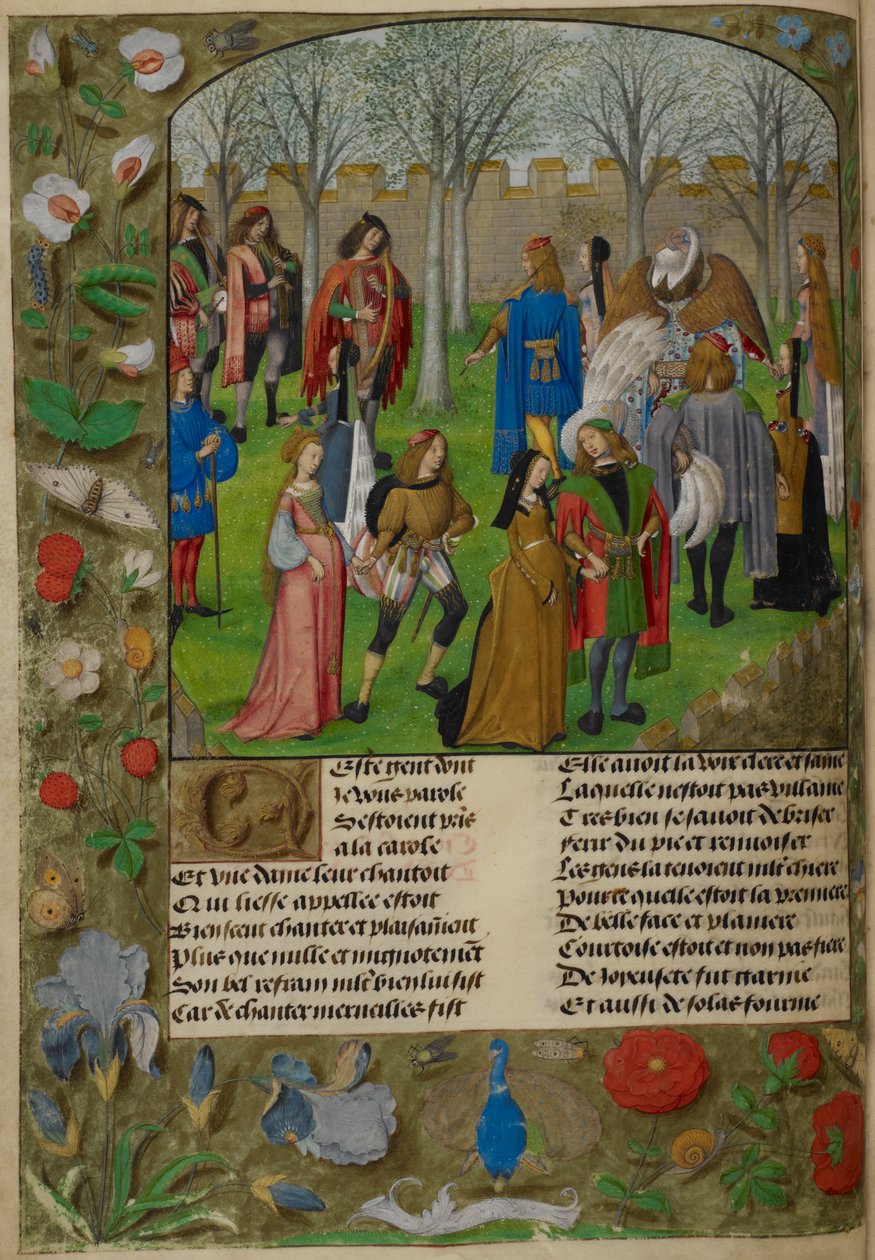 Ceste gent dont
Je vous parole
Sestoient pris
a la carole
Et vne dame leur chantoit
Qui liesse appellee estoit
Bien sceut chanter et plaisam̃ent
Plus que nulle et mignotemẽt
Son bel refrain mlt̃ bien lui sist
Car de chanter merueilles fist
Elle auoit la voix clere et saine
Laquelle nestoit pas villaine
Tres bien se sauoit debriser
Ferir du pie et renuoiser
Les gens la tenoient mlt̃ chiere
Pource quelle estoit la premiere
De belle face et planiere
Courtoise estoit et non pas fiere
De Joyeusete fut garnie
Et aussi de solas fournie